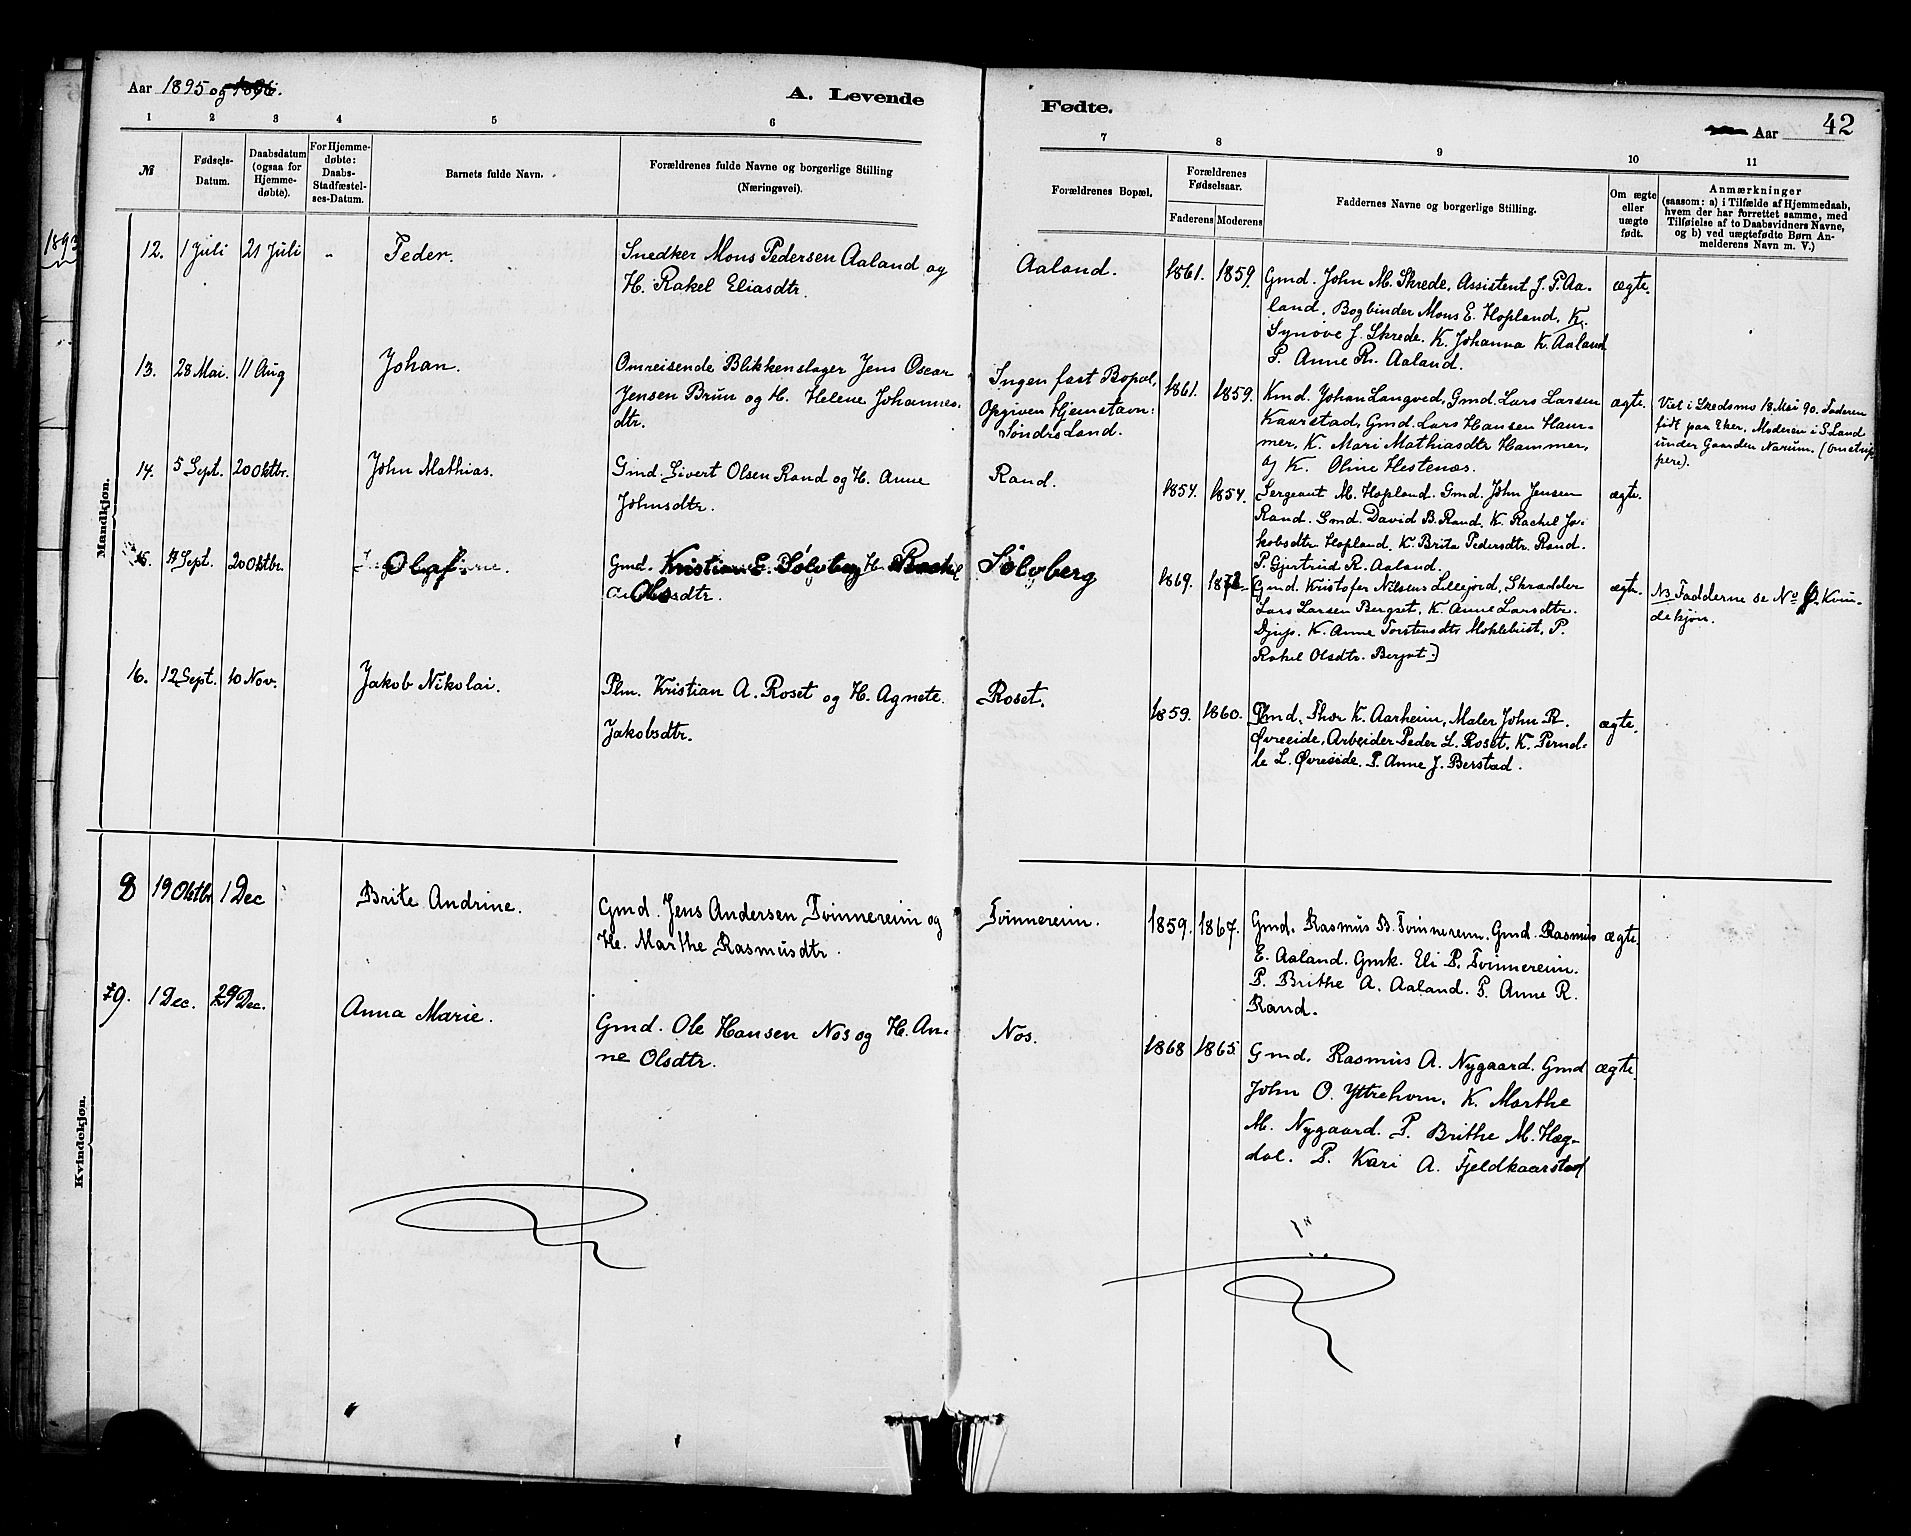 Aar 1895 og 1896.
A. Levende
Fødte.
Aar
42
1 2 3 4 5 6
7 8 9 10 11
№
Fødsels-
Datum.
Daabsdatum
(ogsaa for
Hjemme-
døbte).
For Hjemme-
døbte:
Daabs-
Stadfæstel-
ses-Datum.
Barnets fulde Navn.
Forældrenes fulde Navne og borgerlige Stilling
(Næringsvei).
Forældrenes Bopæl.
Forældrenes
Fødselsaar.
Faderens Moderens
Faddernes Navne og borgerlige Stilling.
Om ægte
eller
uægte
født.
Anmærkninger
(saasom: a) i Tilfælde af Hjemmedaab,
hvem der har forrettet samme, med
Tilføielse af to Daabsvidners Navne,
og b) ved uægtefødte Børn An-
melderens Navn m. V.)
Mandkjøn.
12. 1 Juli 21 Juli "
Peder.
Snedker Mons Pedersen Aaland og
H. Rakel Eliasdtr.
Aaland.
1861. 1859.
Gmd. John M. Skrede, Assistent J. P. Aa-
land, Bogbinder Mons E. Hopland. K.
Synøve J. Skrede. K. Johanna K. Aaland
P. Anne R. Aaland.
ægte.
13. 28 Mai. 11 Aug
Johan.
Omreisende Blikkenslager Jens Oscar
Jensen Brun og H. Helene Johannes-
dtr.
Ingen fast Bopæl,
Opgiven Hjemstavn:
Søndre Land.
1861. 1859.
Kmd. Johan Langved, Gmd. Lars Larsen
Kaarstad, Gmd. Lars Hansen Ham-
mer, K. Mari Mathiasdtr Hammer,
og K. Oline Hestenæs.
ægte.
Viet i Skedsmo 18 Mai 90. Faderen
født paa Eker, Moderen i S Land
under Gaarden Narum. (omstrip-
pere).
14. 5 Sept. 20 Oktbr.
John Mathias.
Gmd. Sivert Olsen Rand og H. Anne
Johnsdtr.
Rand.
1857. 1857.
Sergeant M. Hopland. Gmd. John Jensen
Rand. Gmd. David B. Rand. K. Rachel Ja-
kobsdtr Hopland. K. Brita Pedersdtr Rand.
P. Gjertrud R. Aaland.
ægte.
15. Sept. 20 Oktbr.
Olaf.
Gmd. Kristian E. Sølvberg H. Rackel
Olsdtr.
Sølvberg
1869. 1872
(Gmd. Kristofer Nilsens Lillejord, Skrædder
Lars Larsen Bergset, K. Anne Larsdtr.
Djup. K. Anne Torstensdtr Moklebust, P.
Rakel Olsdtr. Bergset.)
ægte.
NB Fadderne se No 9. Kvin-
dekjøn.
16. 12 Sept. 10 Nov.
Jakob Nikolai.
Plm. Kristian A. Roset og H. Agnete
Jakobsdtr.
Roset.
1859. 1860.
Gmd. Thor K. Aarheim, Maler John R.
Øvreeide, Arbeider Peder L. Roset. K. Pernil-
le L. Øvreeide. P. Anne J. Berstad.
ægte.
Kvindekjøn.
8 19 Oktbr 1 Dec
Brite Andrine.
Gmd. Jens Andersen Tvinnereim og
H. Marthe Rasmusdtr.
Tvinnereim.
1859. 1867.
Gmd. Rasmus B. Tvinnereim. Gmd. Rasmus
E. Aaland. Gmk. Eli P. Tvinnereim.
P. Brithe A. Aaland. P. Anne R.
Rand.
ægte.
9. 1 Dec. 29 Dec.
Anna Marie.
Gmd. Ole Hansen Nos og H. An-
ne Olsdtr.
Nos.
1868 1865
Gmd. Rasmus A. Nygaard. Gmd
John O. Yttrehorn. K. Marthe
M. Nygaard. P. Brithe M. Hæg-
dal. P. Kari A. Fjeldkaarstad
ægte.